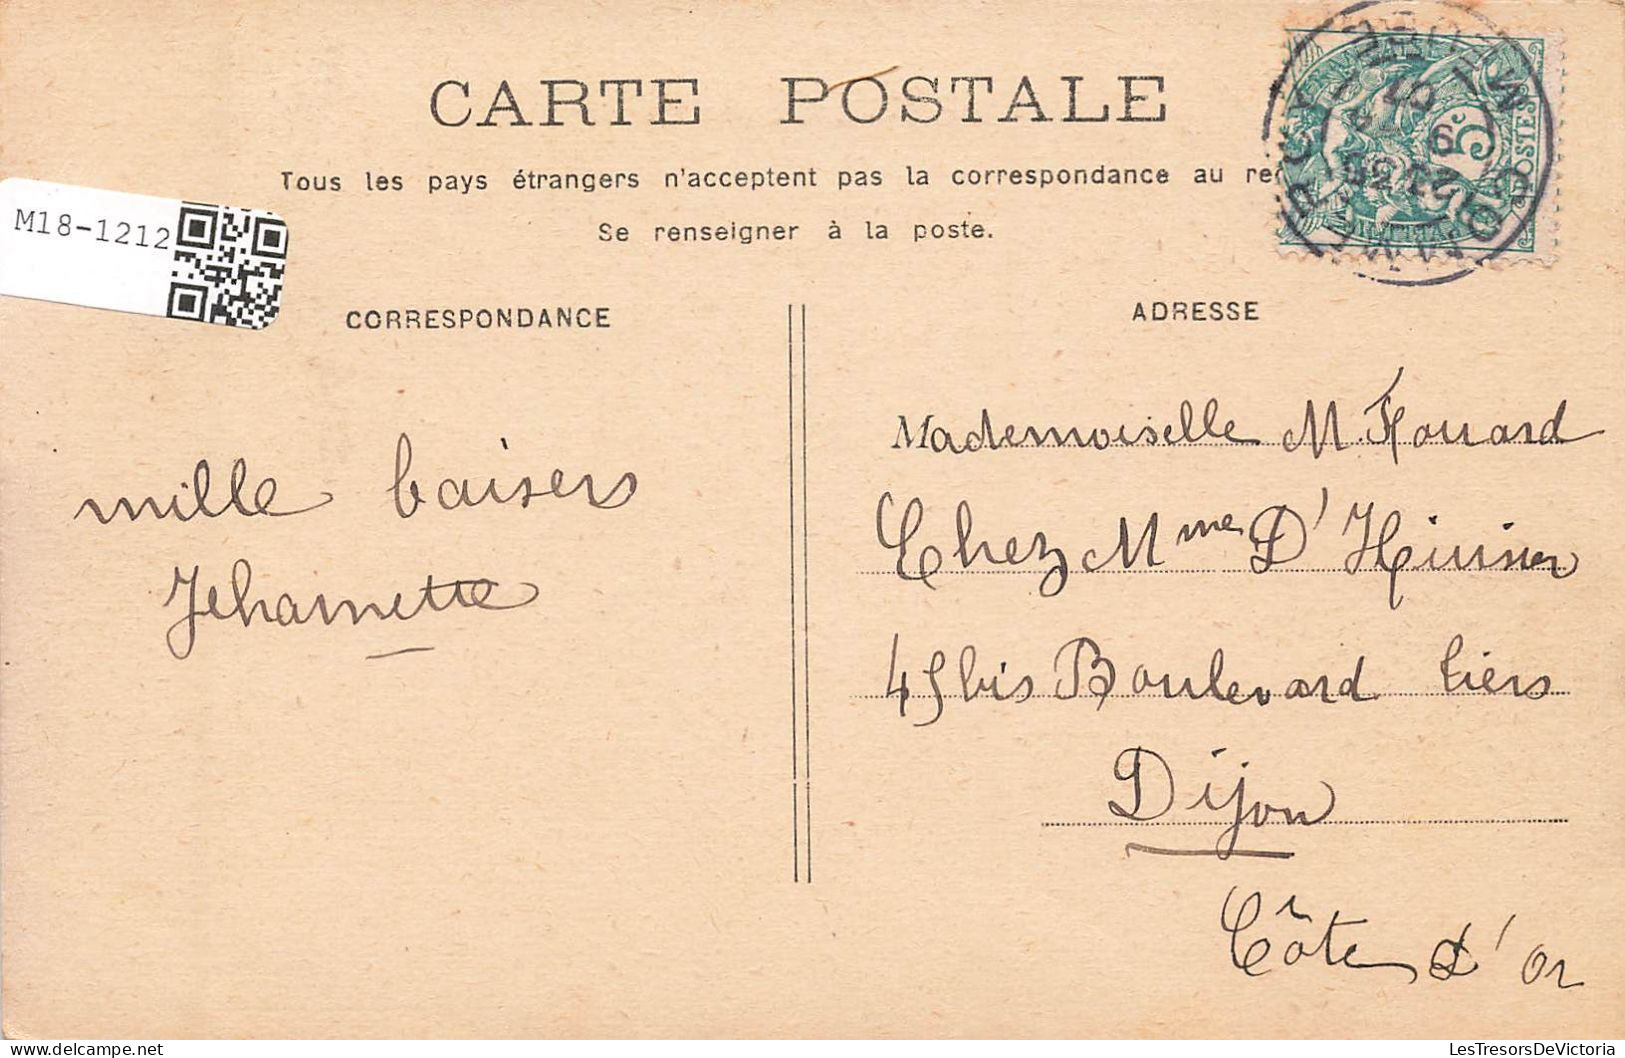 CARTE POSTALE
Tous les pays étrangers n'acceptent pas la correspondance au
Se renseigner à la poste.
M18-1212
CORRESPONDANCE
ADRESSE
mille baisers
Jehannette
Mademoiselle M. Rouard
Chez Mme D'
45 bis Boulevard Tiers
Dijon
Côte d'or
5c
POSTES
LesTresorsDeVictoria